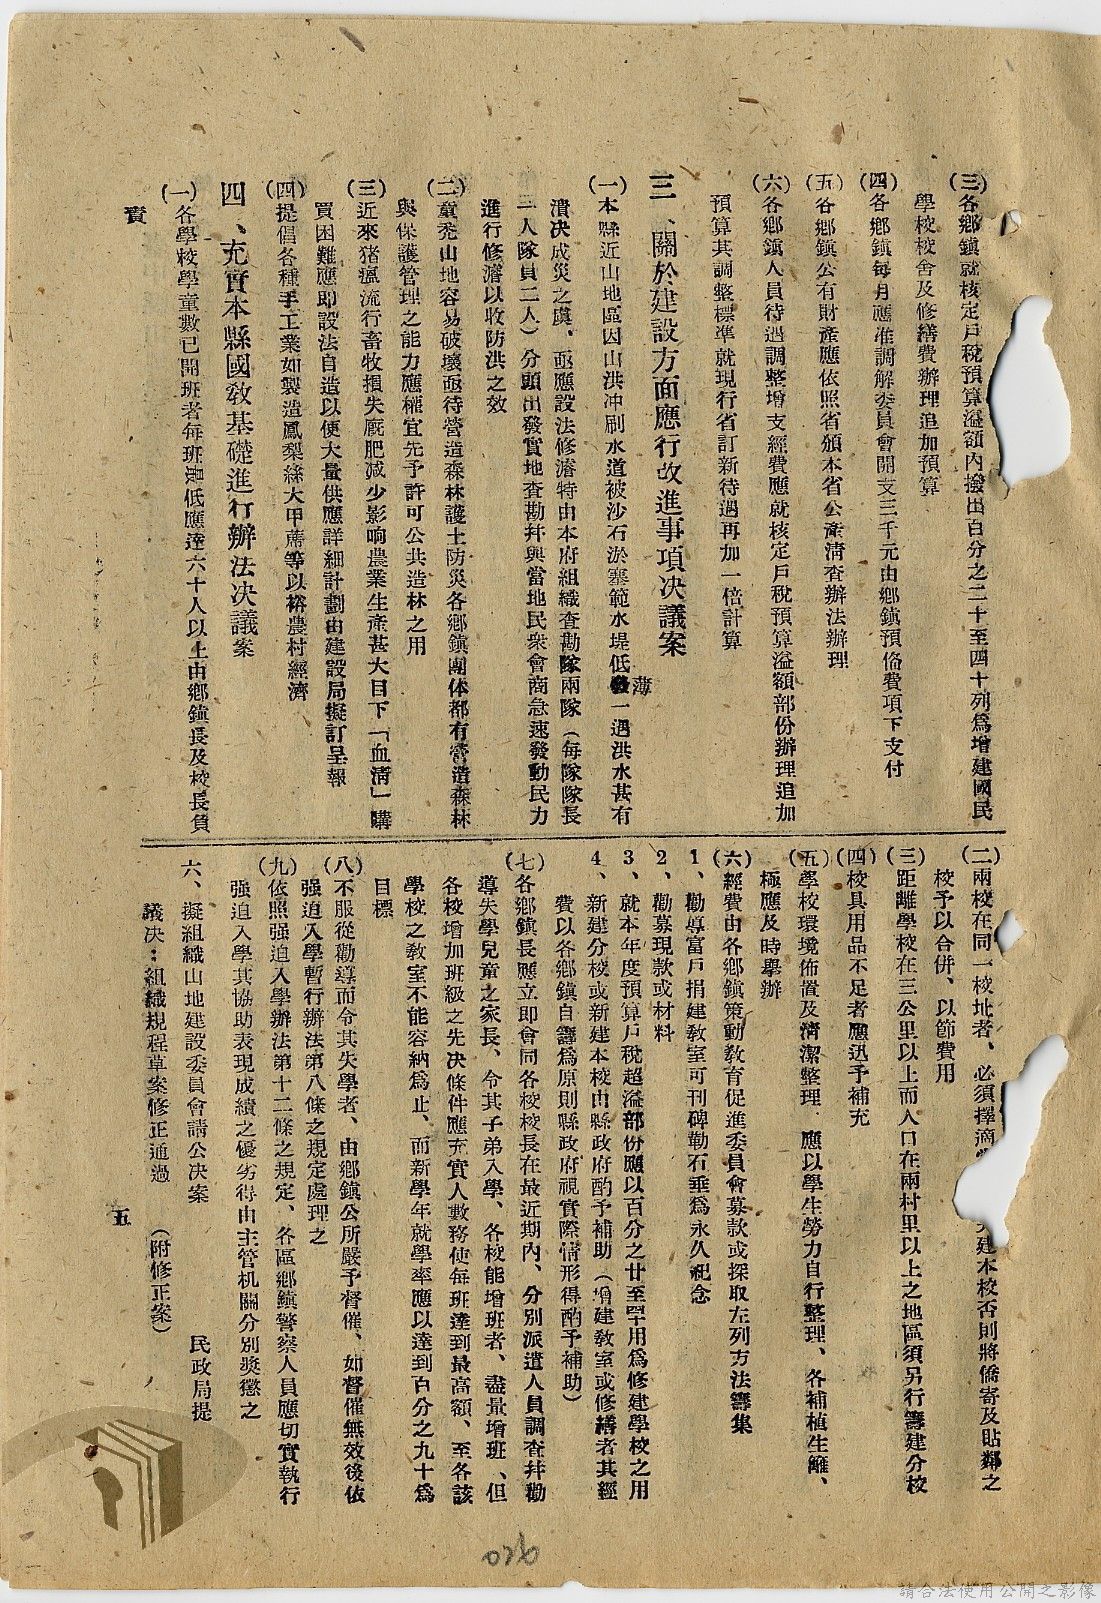 (三)各鄉鎮就核定戶稅預算溢額內撥出百分之二十至四十列爲增建國民
學校校舍及修繕費辦理追加預算
(四)各鄉鎮每月應准調解委員會開支三千元由鄉鎮預俻費項下支付
(五)各鄉鎮公有財產應依照省頒本省公產清查辦法辦理
(六)各鄉鎮人員待遇調整增支經費應就核定戶稅預算溢額部份辦理追加
預算其調整標準就現行省訂新待遇再加一倍計算
三、關於建設方面應行改進事項決議案
(一)本縣近山地區因山洪冲刷水道被沙石淤塞範水堤低薄一遇洪水甚有
潰决成災之虞、亟應設法修濬特由本府組織查勘隊兩隊(每隊隊長
一人隊員二人)分頭出發實地查勘幷與當地民衆會商急速發動民力
進行修濬以收防洪之效
(二)童禿山地容易破壞亟待營造森林護土防災各鄉鎮團体都有營造森林
與保護管理之能力應權宜先予許可公共造林之用
(三)近來猪瘟流行畜牧損失廐肥減少影响農業生產甚大目下「血清」購
買困難應即設法自造以便大量供應詳細計劃由建設局擬訂呈報
(四)提倡各種手工業如製造鳳梨絲大甲蓆等以裕農村經濟
四、充實本縣國敎基礎進行辦法决議案
(一)各學校學童數已開班者每班低應達六十人以上由鄉鎮長及校長負
責
(二)兩校在同一校址者、必須擇適建本校否則將僑寄及貼鄰之
校予以合併、以節費用
(三)距離學校在三公里以上而人口在兩村里以上之地區須另行籌建分校
(四)校具用品不足者應迅予補充
(五)學校環境佈置及淸潔整理.應以學生勞力自行整理、各補植生籬、
極應及時舉辦
(六)經費由各鄉鎮策動敎育促進委員會募款或採取左列方法籌集
1、勸導富戶捐建敎室可刊碑勒石垂爲永久祀念
2、勸募現款或材料
3、就本年度預算戶稅超溢部份應以百分之廿至罕用爲修建學校之用
4、新建分校或新建本校由縣政府酌予補助(增建敎室或修繕者其經
費以各鄉鎮自籌爲原則縣政府視實際情形得酌予補助)
(七)各鄉鎮長應立即會同各校校長在最近期內、分別派遣人員調查幷勸
導失學兒童之家長、令其子弟入學、各校能增班者、盡量增班、但
各校增加班級之先决條件應充實人數務使每班達到最高額、至各該
學校之敎室不能容納爲止、而新學年就學率應以達到百分之九十爲
目標
(八)不服從勸導而令其失學者、由鄉鎮公所嚴予督催、如督催無效後依
强迫入學暫行辦法第八條之規定處理之
(九)依照强迫入學辦法第十二條之規定、各區鄉鎮警察人員應切實執行
强迫入學其協助表現成績之優劣得由主管机關分別奬懲之
六、擬組織山地建設委員會請公決案 民政局提
議决：組織規程草案修正通過 (附修正案)
五
026
請合法使用公開之影像